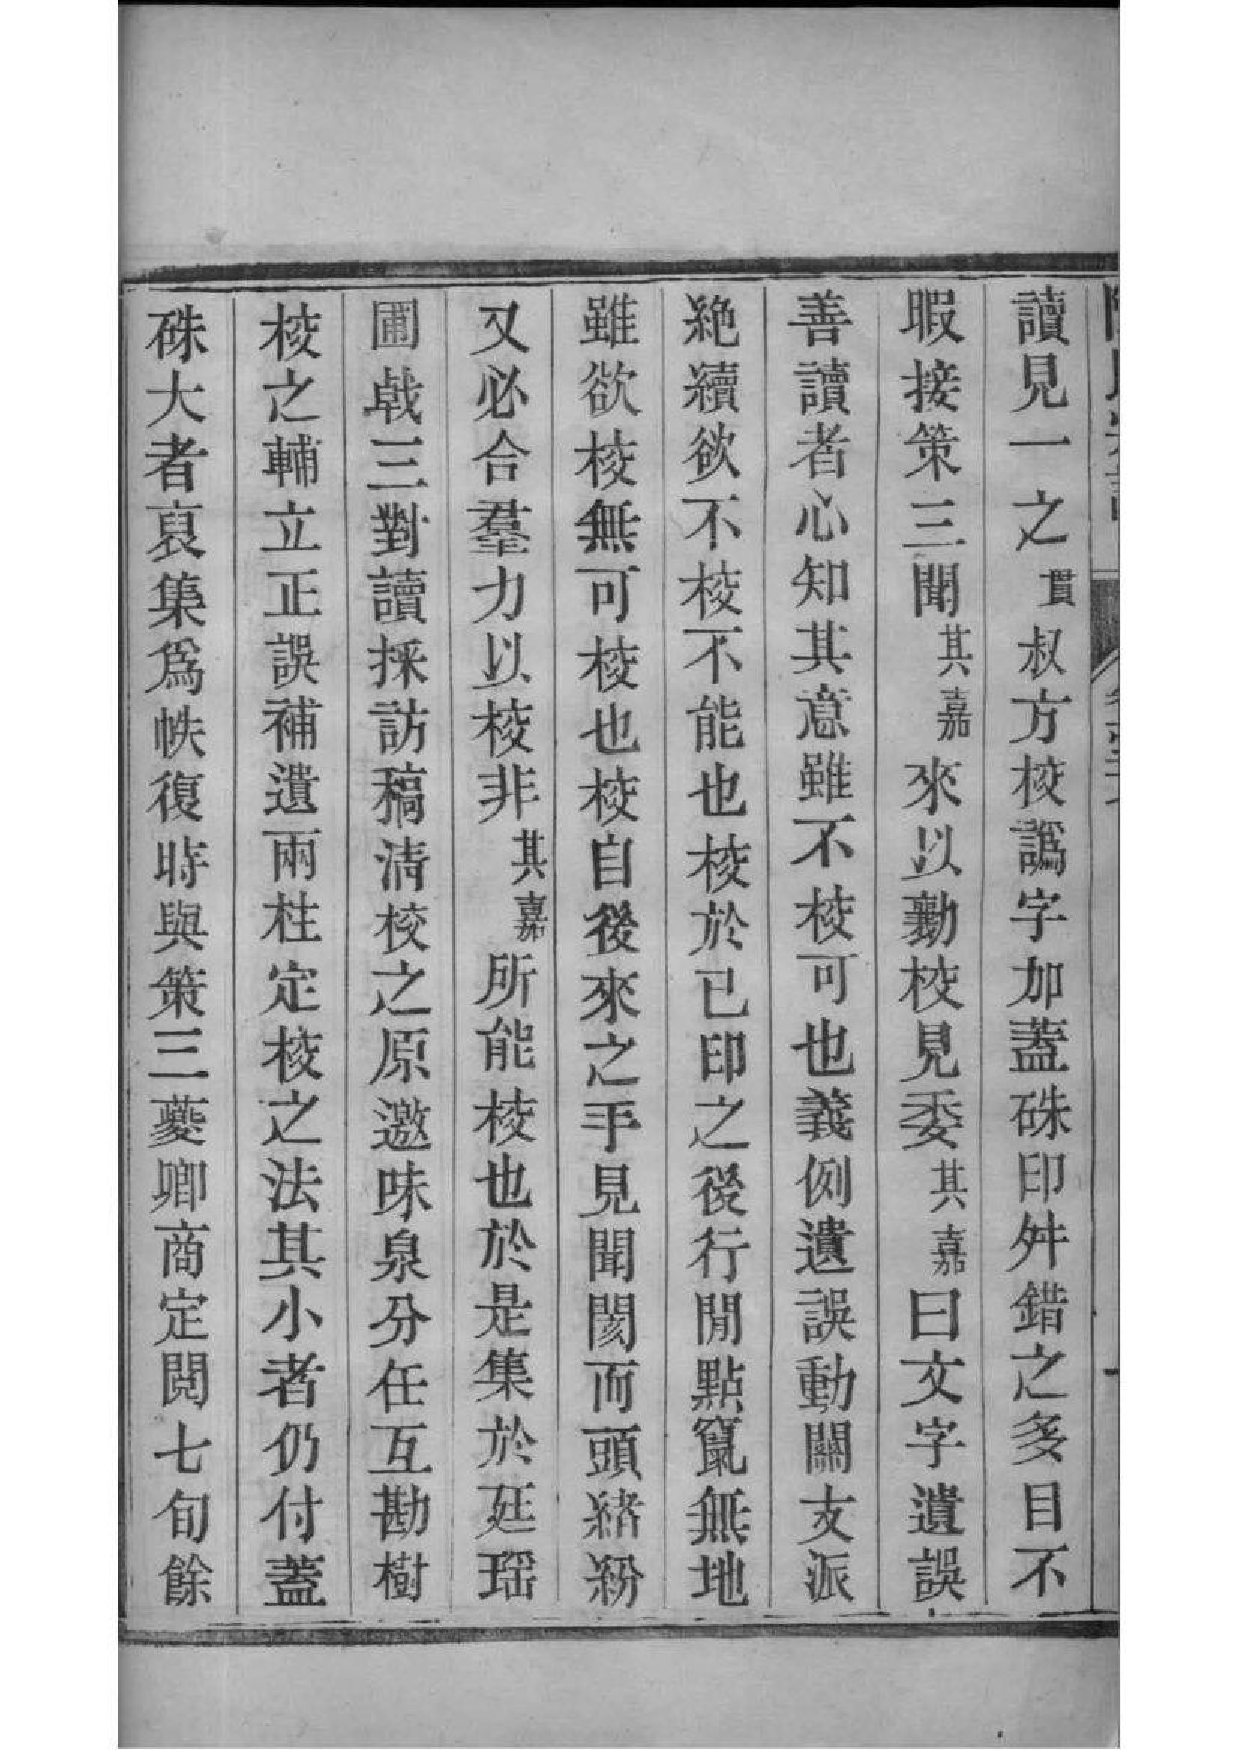 讀見一之貫叔方校譌字加蓋硃印舛錯之多目不
暇接策三聞其嘉來以勷校見委其嘉曰文字遺誤
善讀者心知其意雖不校可也義例遺誤動關支派
絶續欲不校不能也校於已印之後行間點竄無地
雖欲校無可校也校自後來之手見聞閡而頭緒紛
又必合羣力以校非其嘉所能校也於是集於廷瑶
圃戟三對讀採訪稿清校之原邀味泉分任互勘樹
校之輔立正誤補遺兩柱定校之法其小者仍付蓋
硃大者裒集爲帙復時與策三夔卿商定閱七旬餘